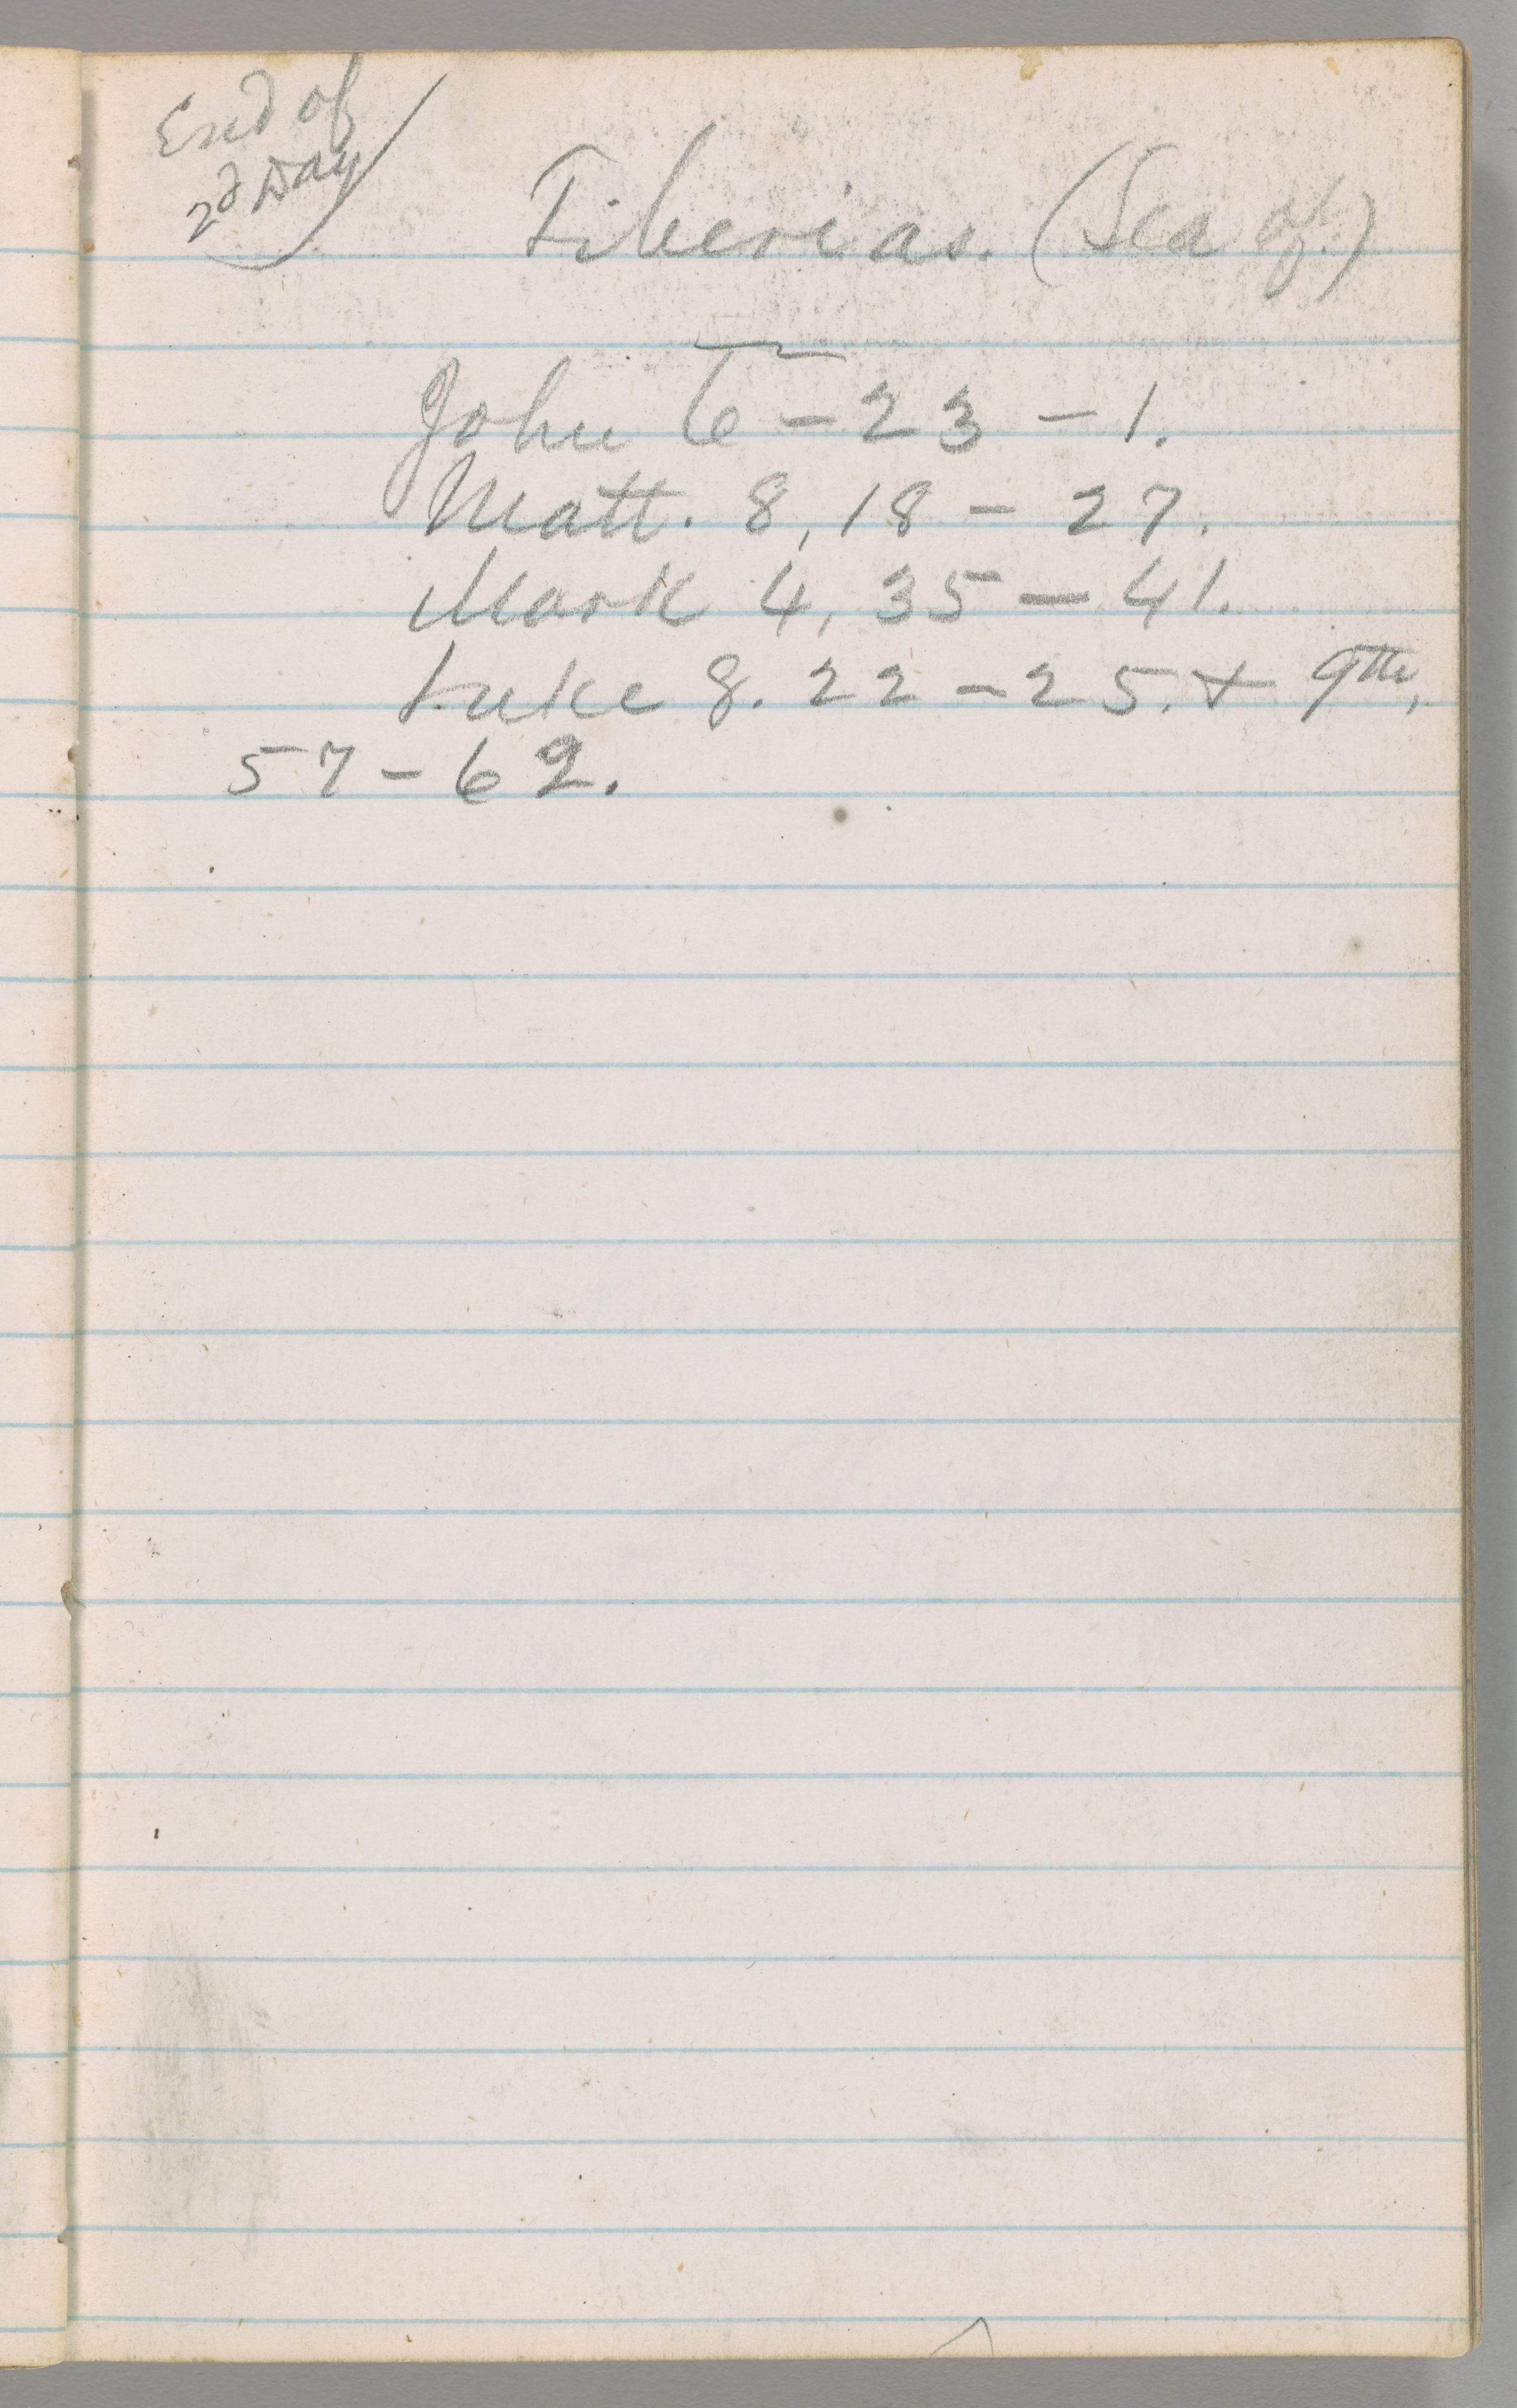 End of
2d Day
Tiberias. (Sea of.)
John 6 - 23 - 1.
Matt. 8, 18 - 27.
Mark 4, 35 - 41.
Luke 8. 22 - 25. + 9th,
57 - 62.